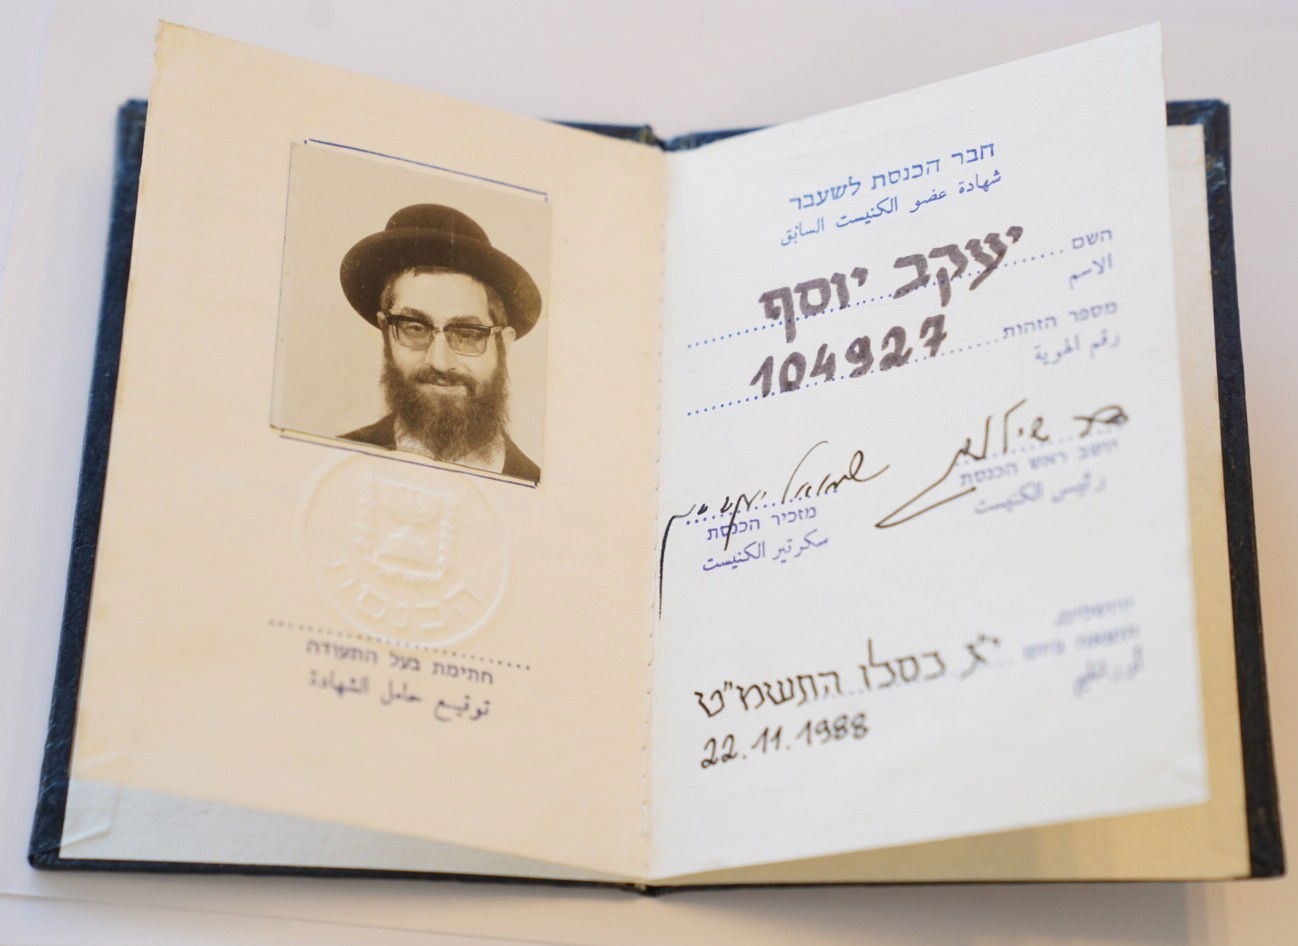 הכנסת
חתימת בעל התעודה
توقيع حامل الشهادة
חבר הכנסת לשעבר
شهادة عضو الكنيست السابق
השם יעקב יוסף
الاسم
מספר הזהות 104927
رقم الهوية
יושב ראש הכנסת
رئيس الكنيست
מזכיר הכנסת
سكرتير الكنيست
י"ג כסלו התשמ"ט
22.11.1988